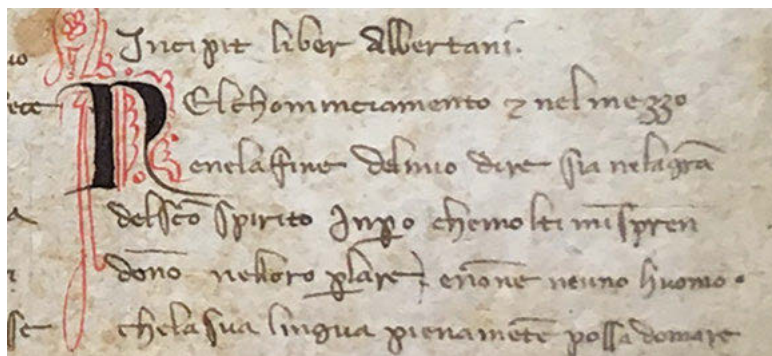 Incipit liber Albertani.
NElchominciamento ⁊ nel mezzo
enelafine delmio dire sia nelagrã
delsc̃o spirito Inꝑo chemolti mĩspren
donõ nelloro ꝑlare ⁊ enone neuno huomo
chelasua lingua pienamẽte possa domare